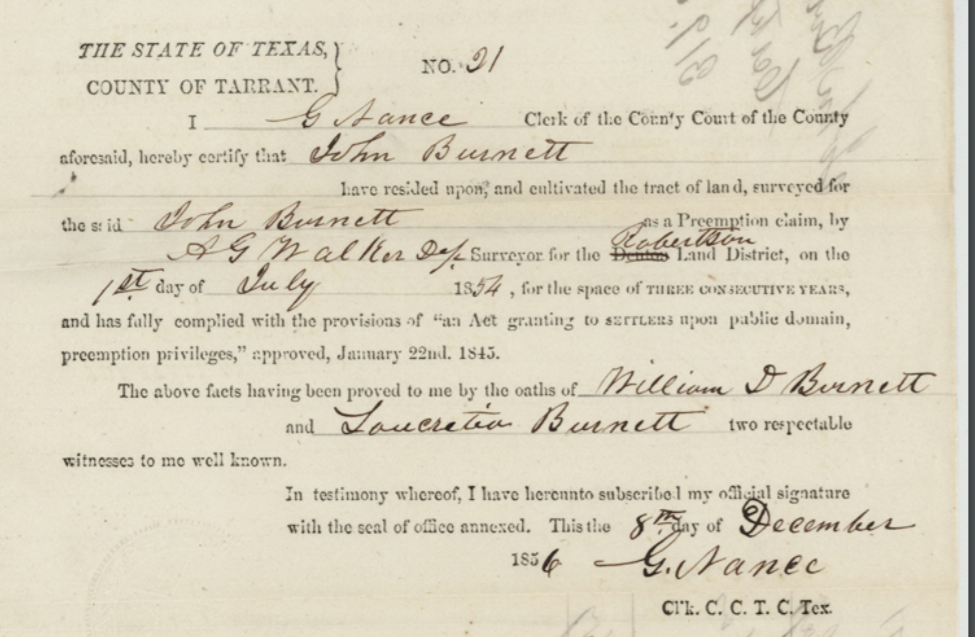 THE STATE OF TEXAS,
COUNTY OF TARRANT.
NO. 21
I G Nance Clerk of the County Court of the County
aforesaid, hereby certify that John Burnett
have resided upon, and cultivated the tract of land, surveyed for
the said John Burnett as a Preemption claim, by
Robertson
A G Walker Dep Surveyor for the Denton Land District, on the
1st day of July 1854, for the space of THREE CONSECUTIVE YEARS,
and has fully complied with the provisions of "an Act granting to SETTLERS upon public domain,
preemption privileges," approved, January 22nd. 1845.
The above facts having been proved to me by the oaths of William D Burnett
and Loucretia Burnett two respectable
witnesses to me well known.
In testimony whereof, I have hereunto subscribed my official signature
with the seal of office annexed. This the 8th day of December
1856 G. Nance
Cl'k. C. C. T. C. Tex.